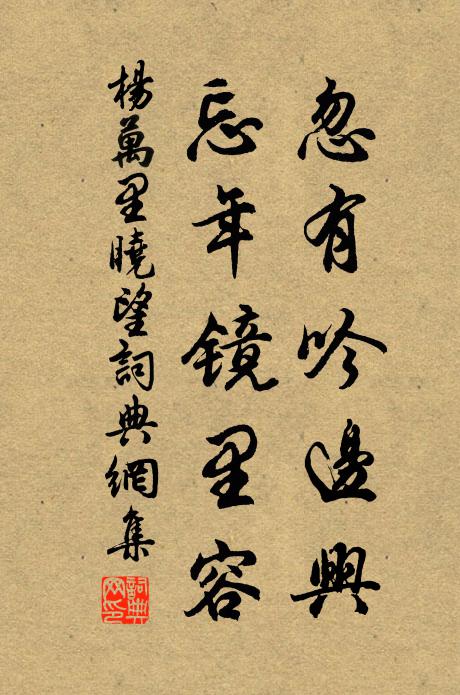 忽有吟邊興
忘年镜里容
楊萬里曉望詞典網集
詞典网印